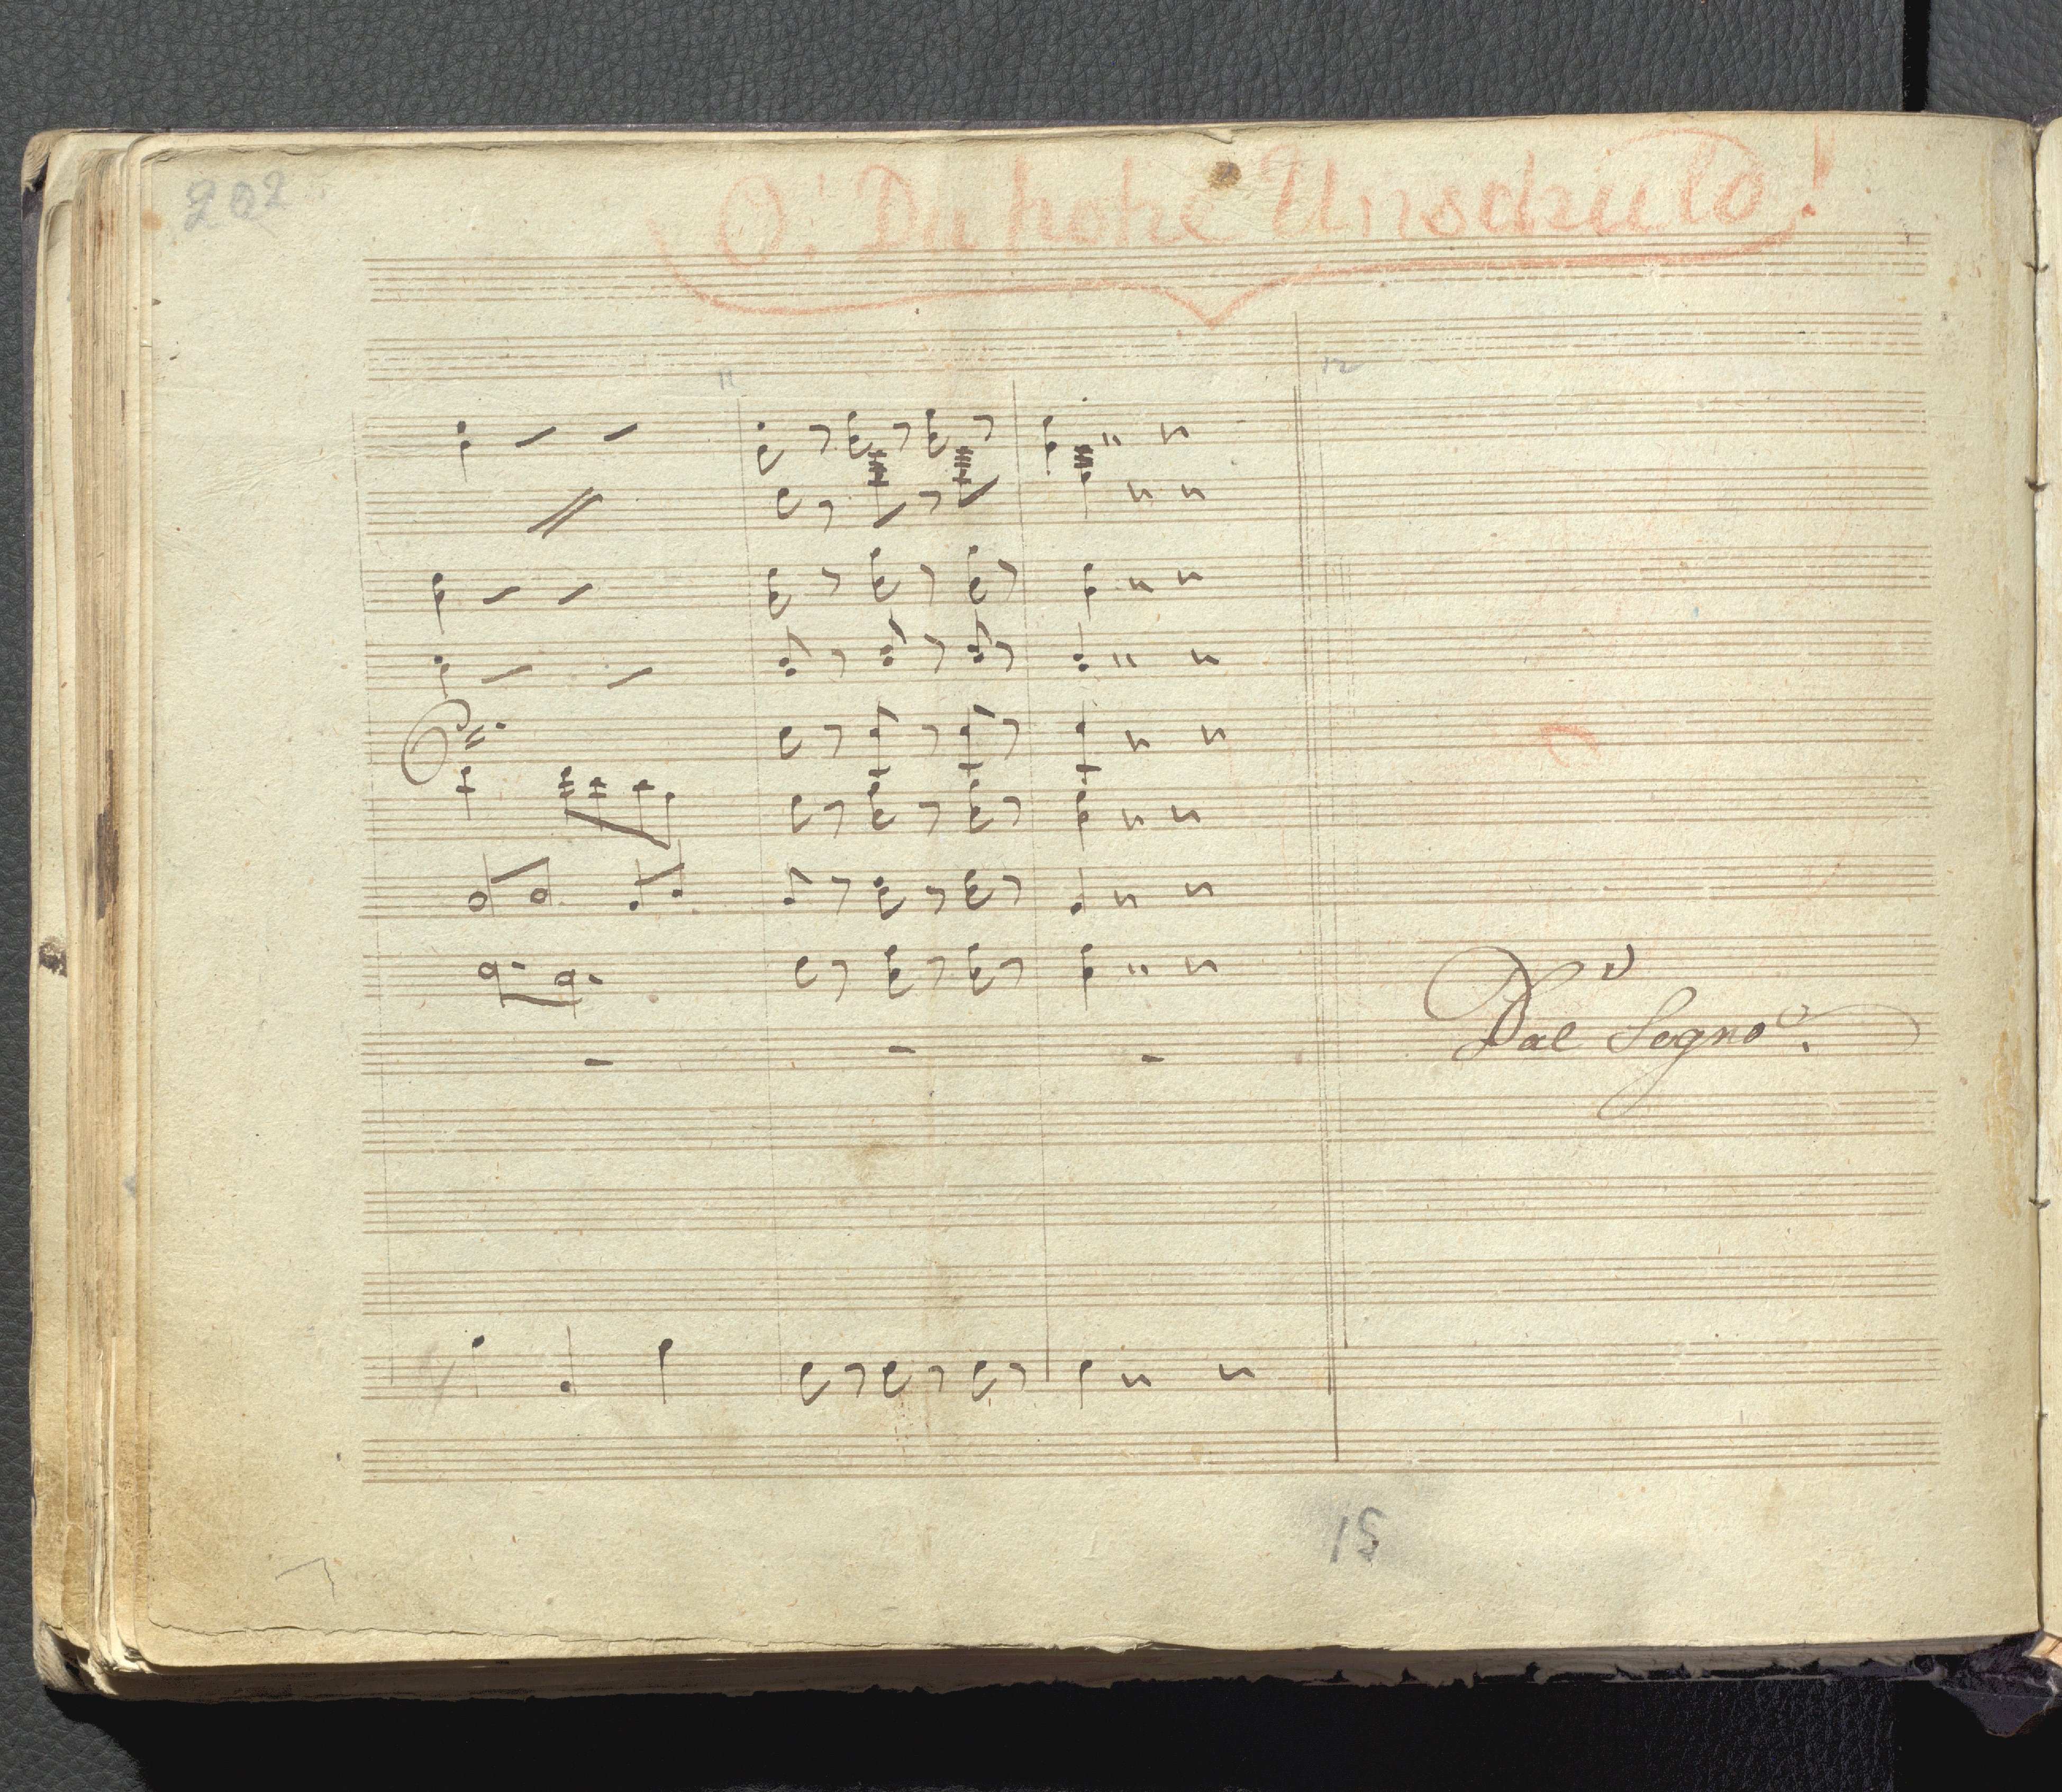 202
O! Du hohe Unschuld!
11
12
Dal Segno
15